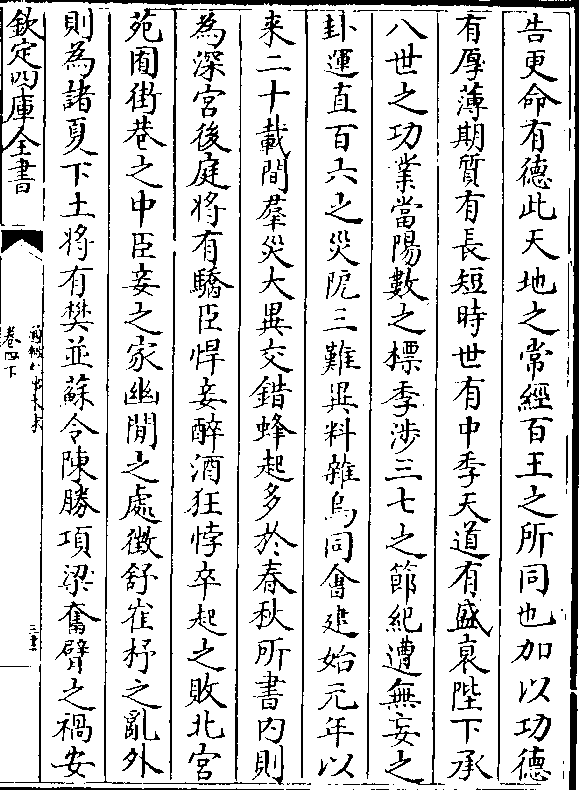 告更命有德此天地之常經百王之所同也加以功德
有厚薄期質有長短時世有中季天道有盛衰陛下承
八世之功業當陽數之標季渉三七之節紀遭無妄之
卦運直百六之災阸三難異料雜焉同會建始元年以
来二十載間羣災大異交錯蜂起多於春秋所書内則
為深宫後庭将有驕臣悍妾醉酒狂悖卒起之敗北宫
苑囿街巷之中臣妾之家幽閒之處徴舒崔杼之亂外
則為諸夏下土将有樊並蘇令陳勝項梁奮臂之禍安
欽定四庫全書
卷四下